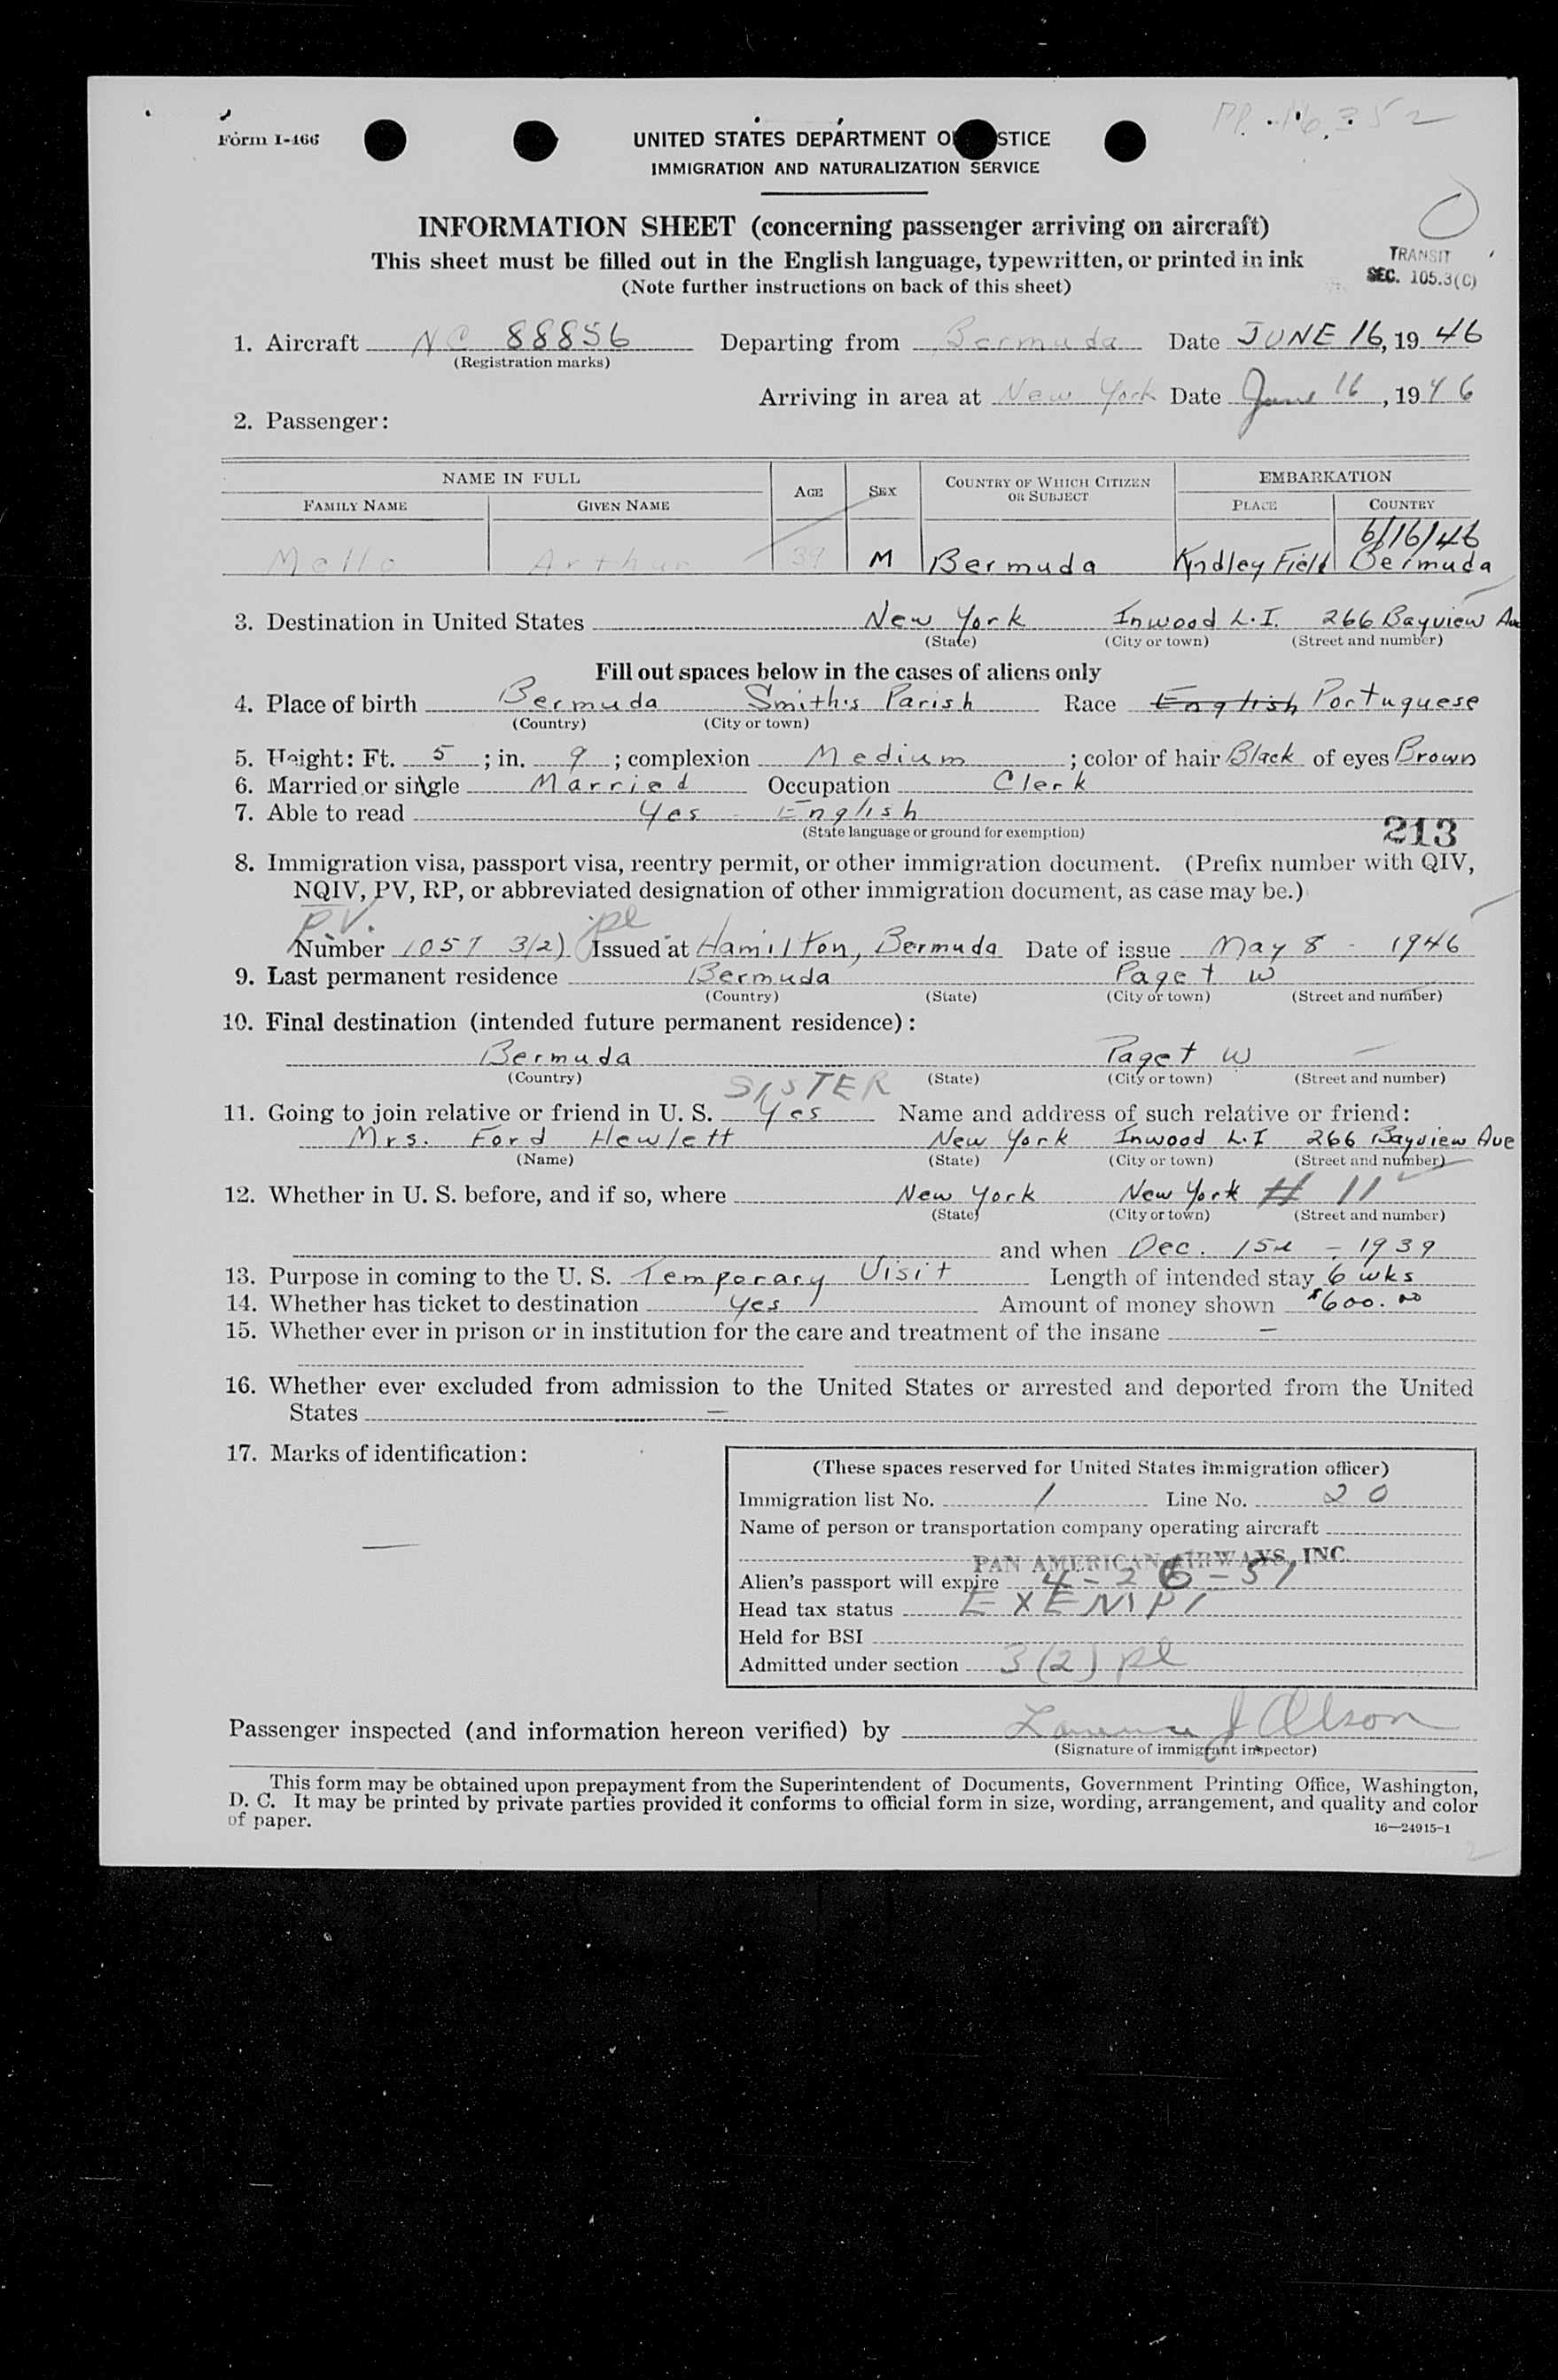 PP. 16352
Form I-466
UNITED STATES DEPARTMENT O STICE
IMMIGRATION AND NATURALIZATION SERVICE
INFORMATION SHEET (concerning passenger arriving on aircraft)
This sheet must be filled out in the English language, typewritten, or printed in ink
(Note further instructions on back of this sheet)
TRANSIT
SEC. 105.3(C)
1. Aircraft NC 88856 Departing from Bermuda Date JUNE 16, 19 46
(Registration marks)
Arriving in area at New York Date June 16, 19 46
2. Passenger:
NAME IN FULL AGE SEX COUNTRY OF WHICH CITIZEN OR SUBJECT EMBARKATION
FAMILY NAME GIVEN NAME PLACE COUNTRY
6/16/46
Mello Arthur 39 M Bermuda Kyndley Field Bermuda
3. Destination in United States New York Inwood L.I. 266 Bayview Ave
(State) (City or town) (Street and number)
Fill out spaces below in the cases of aliens only
4. Place of birth Bermuda Smith's Parish Race English Portuguese
(Country) (City or town)
5. Height: Ft. 5 ; in. 9 ; complexion Medium ; color of hair Black of eyes Brown
6. Married or single Married Occupation Clerk
7. Able to read Yes English
(State language or ground for exemption)
213
8. Immigration visa, passport visa, reentry permit, or other immigration document. (Prefix number with QIV,
NQIV, PV, RP, or abbreviated designation of other immigration document, as case may be.)
P.V. pl
Number 1057 3(2) Issued at Hamilton, Bermuda Date of issue May 8 - 1946
9. Last permanent residence Bermuda Paget W
(Country) (State) (City or town) (Street and number)
10. Final destination (intended future permanent residence):
Bermuda Paget W —
(Country) (State) (City or town) (Street and number)
SISTER
11. Going to join relative or friend in U. S. Yes Name and address of such relative or friend:
Mrs. Ford Hewlett New York Inwood L.I 266 Bayview Ave
(Name) (State) (City or town) (Street and number)
12. Whether in U. S. before, and if so, where New York New York # 11
(State) (City or town) (Street and number)
and when Dec. - 1939
13. Purpose in coming to the U. S. Temporary Visit Length of intended stay 6 wks
14. Whether has ticket to destination Yes Amount of money shown $600.00
15. Whether ever in prison or in institution for the care and treatment of the insane —
16. Whether ever excluded from admission to the United States or arrested and deported from the United
States —
17. Marks of identification:
—
(These spaces reserved for United States immigration officer)
Immigration list No. 1 Line No. 20
Name of person or transportation company operating aircraft
PAN AMERICAN AIRWAYS, INC.
Alien's passport will expire 4-26-51
Head tax status EXEMPT
Held for BSI
Admitted under section 3(2) pl
Passenger inspected (and information hereon verified) by Lawrence J Olson
(Signature of immigrant inspector)
This form may be obtained upon prepayment from the Superintendent of Documents, Government Printing Office, Washington,
D. C. It may be printed by private parties provided it conforms to official form in size, wording, arrangement, and quality and color
of paper.
16—24915-1
2